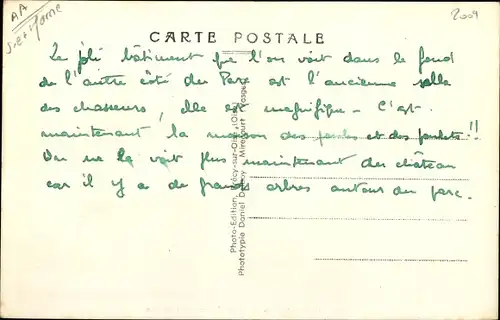 AA
S.et Marne
2009
CARTE POSTALE
Le joli bâtiment que l'on voit dans le fond
de l'autre côté du Parc est l'ancienne salle
des chasseurs, elle est magnifique - C'est
maintenant, la maison des poules et des poulets!!
On ne la voit plus maintenant du château
car il y a de grands arbres autour du parc.
Photo-Edition, Précy-sur-Oise (Oise)
Phototypie Daniel Delboy - Mirecourt (Vosges)